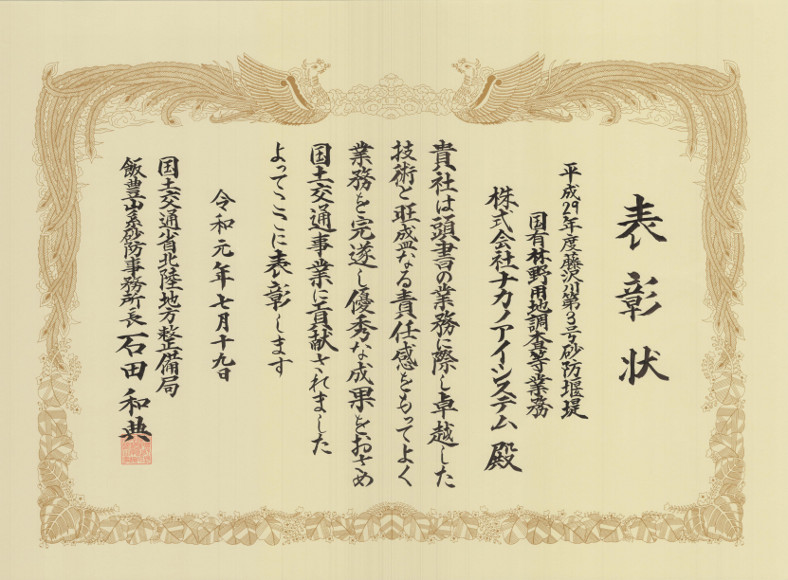 表彰状
平成29年度藤沢川第3号砂防堰堤
国有林野用地調査等業務
株式会社ナカノアイシステム 殿
貴社は頭書の業務に際し卓越した
技術と旺盛なる責任感をもってよく
業務を完遂し優秀な成果をおさめ
国土交通事業に貢献されました
よってここに表彰します
令和元年七月十九日
国土交通省北陸地方整備局
飯豊山系砂防事務所長 石田和典